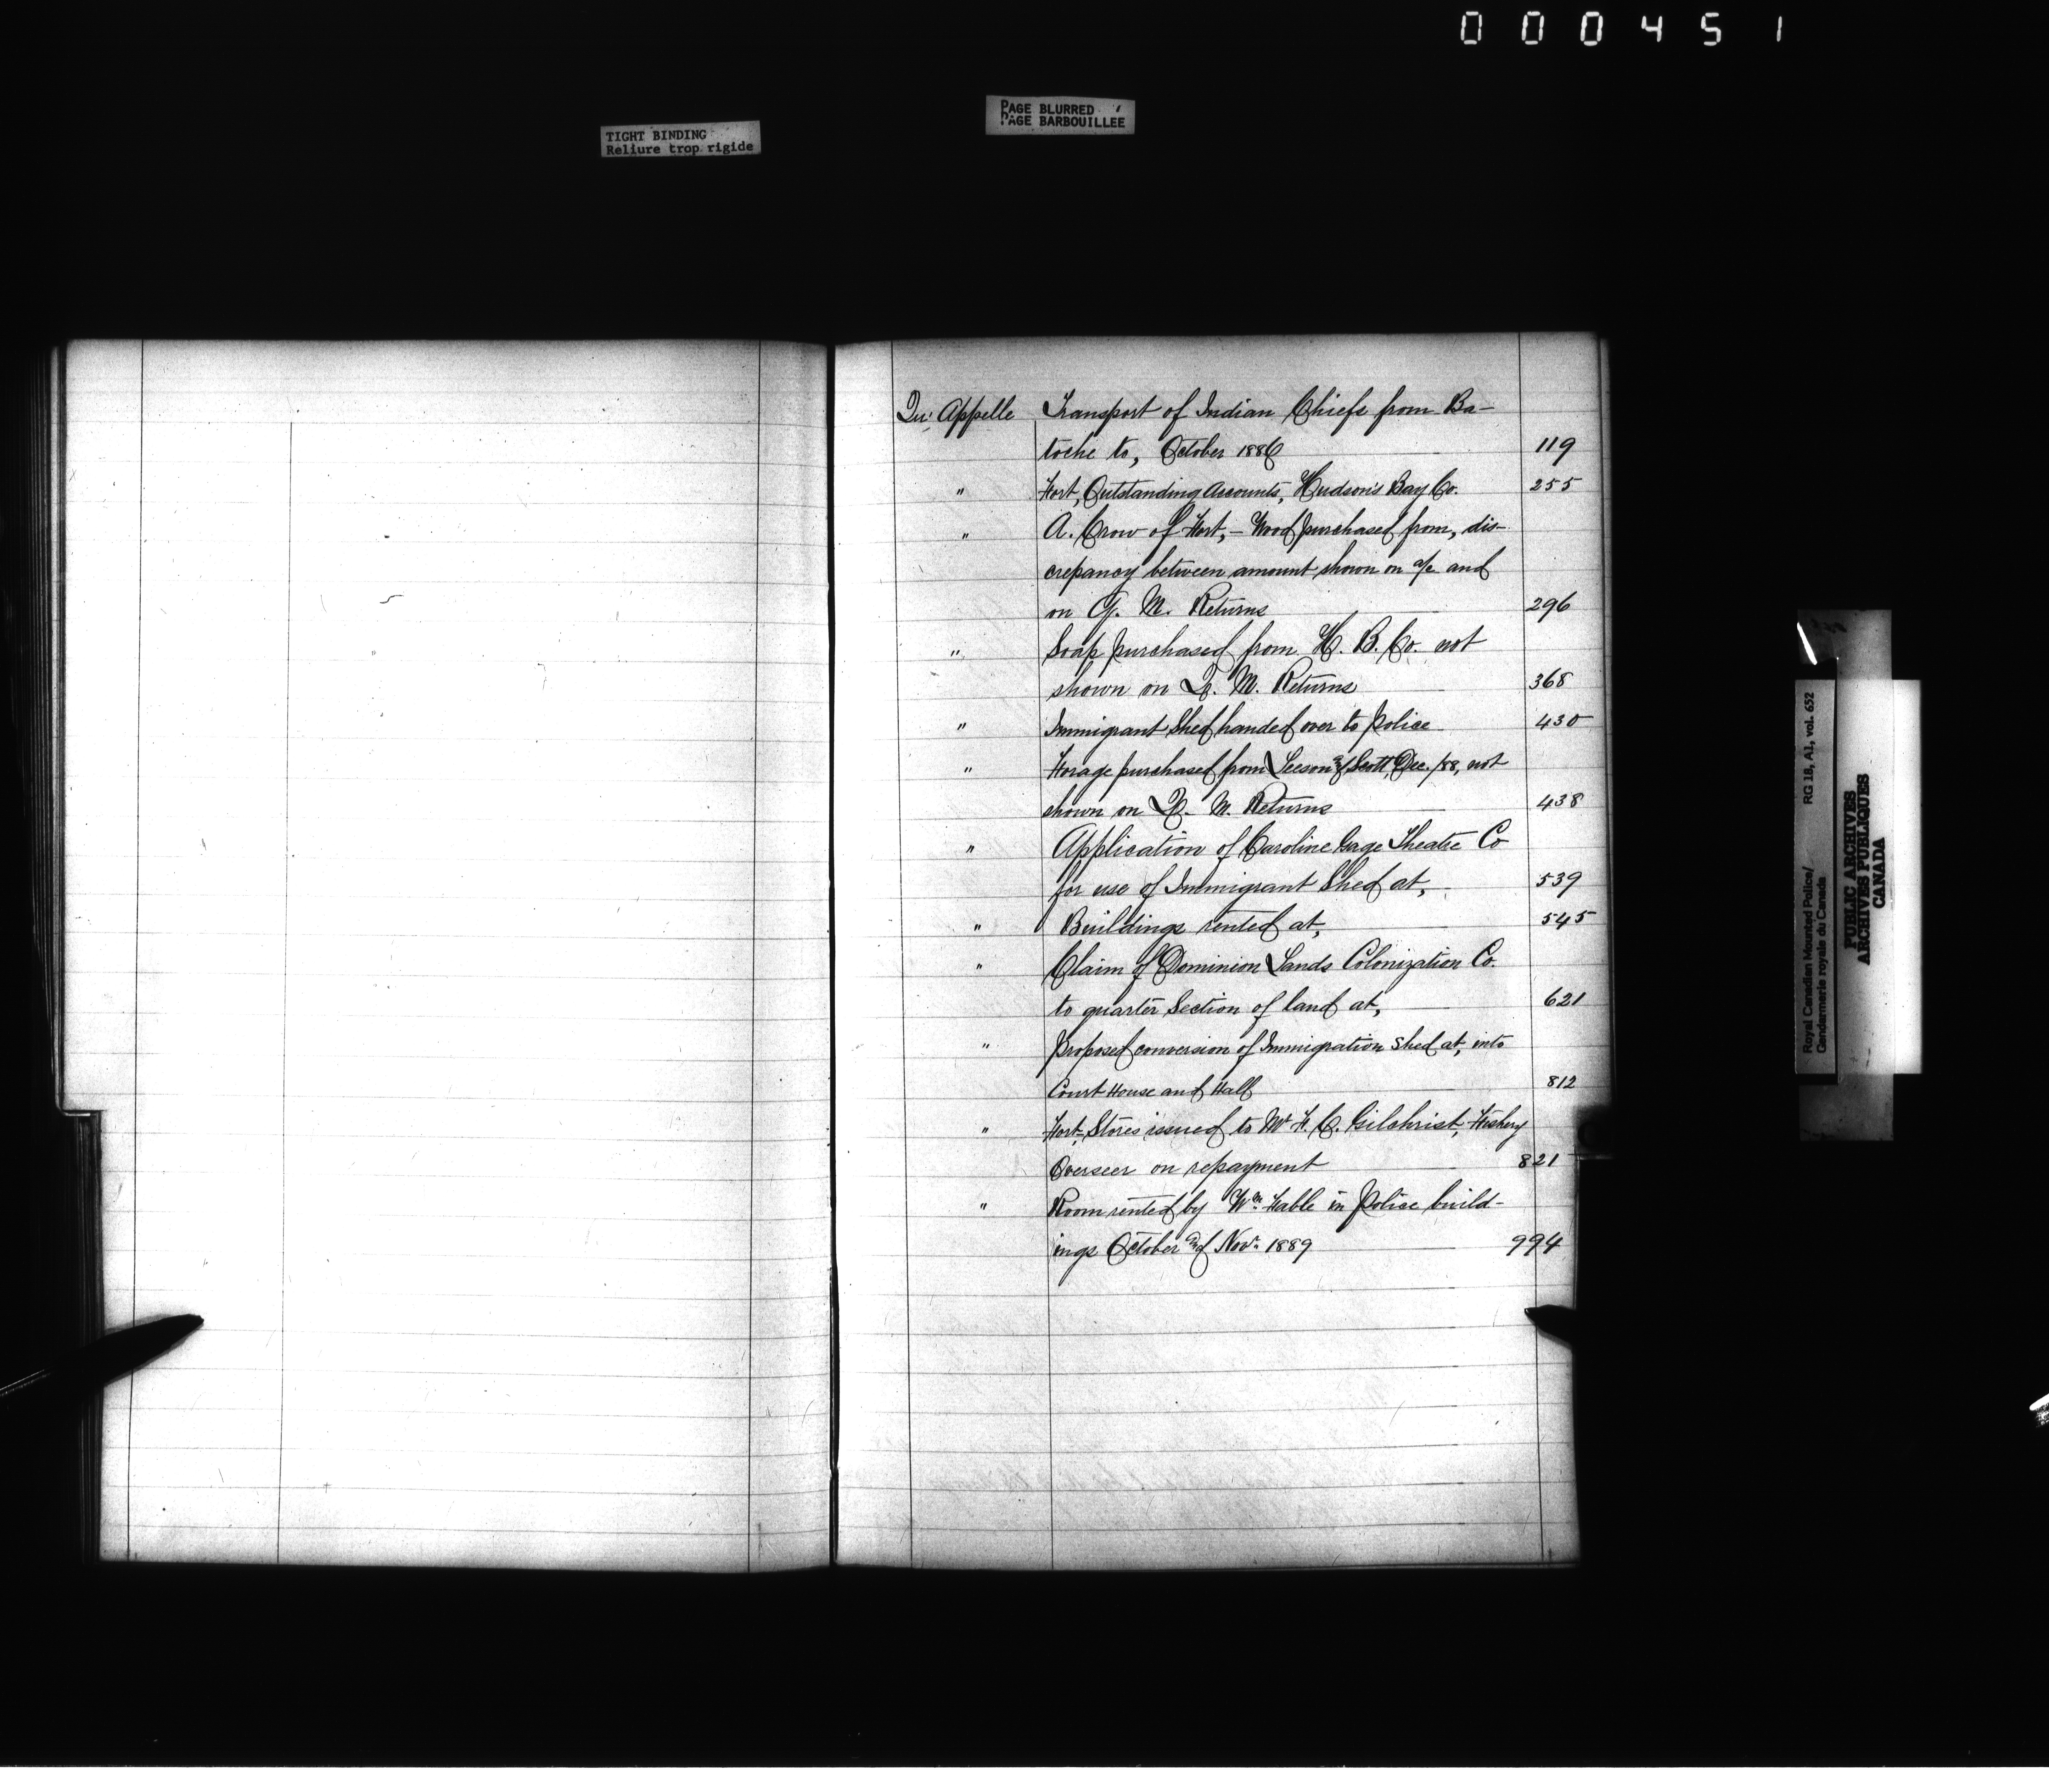 000451
TIGHT BINDING
Reliure trop rigide
PAGE BLURRED
PAGE BARBOUILLÉE
Qu'Appelle Transport of Indian Chiefs from Ba-
toche to, October 1886 119
" Fort, Outstanding Accounts, Hudson's Bay Co. 255
" A. Crow of Fort, - Wood purchased from, dis-
crepancy between amount shown on a/c and
on Q. M. Returns 296
" Soap purchased from H. B. Co. not
shown on Q. M. Returns 368
" Immigrant Shed handed over to Police 430
" Forage purchased from Leeson and Scott Dec. /88, not
shown on Q. M. Returns 438
" Application of Caroline Gage Theatre Co
for use of Immigrant Shed at, 539
" Buildings rented at, 545
" Claim of Dominion Lands Colonization Co.
to quarter Section of land at, 621
" Proposed conversion of Immigration Shed at, into
Court House and Hall 812
" Fort, Stores issued to Mr F. C. Gilchrist, Fishery
Overseer on repayment 821
" Room rented by Wm Hable in Police build-
ings October and Nov. 1889 994
Royal Canadian Mounted Police/ RG 18, A1, vol. 652
Gendarmerie royale du Canada
PUBLIC ARCHIVES
ARCHIVES PUBLIQUES
CANADA